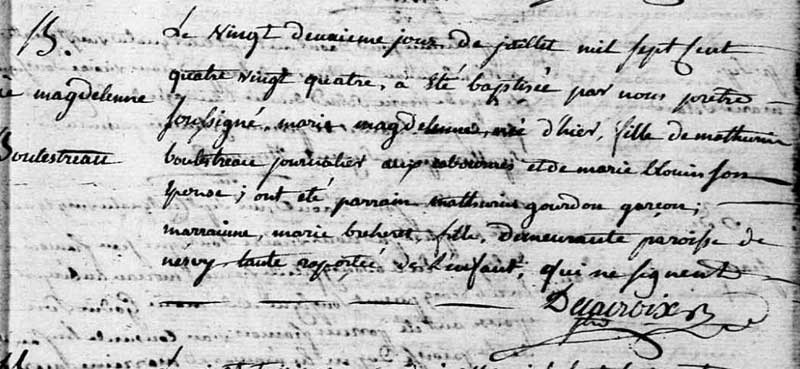 B.
Le vingt deuxieme jour de juillet mil sept cent
quatre vingt quatre, a été baptisée par nous pretre
magdelenne
soussigné, marie magdelenne, née d'hier, fille de mathurin
Boulestreau
boulestreau journalier aux et de marie blouin son
epouse; ont été parrain mathurin gourdon garçon;
marraine, marie breheret, fille, demeurante paroisse de
tante raportée de l'enfant; qui ne signent
Delacroix